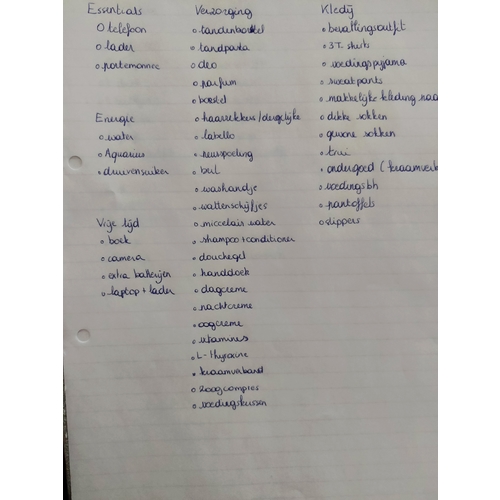 Essentials
telefoon
lader
portemonnee
Energie
water
Aquarius
druivensuiker
Vrije tijd
boek
camera
extra batterijen
laptop + lader
Verzorging
tandenborstel
tandpasta
deo
parfum
borstel
haarrekkers/dergelijke
labello
neusspoeling
washandje
wattenschijfjes
micellair water
shampoo + conditioner
douchegel
handdoek
dagcreme
nachtcreme
oogcreme
vitamines
L-thyroxine
kraamverband
zoogcompres
voedingskussen
Kledij
bevallingsoutfit
3 T. shirts
voedingspyjama
sweatpants
makkelijke kleding naa
dikke sokken
gewone sokken
trui
ondergoed (kraamverb
voedingsbh
pantoffels
slippers